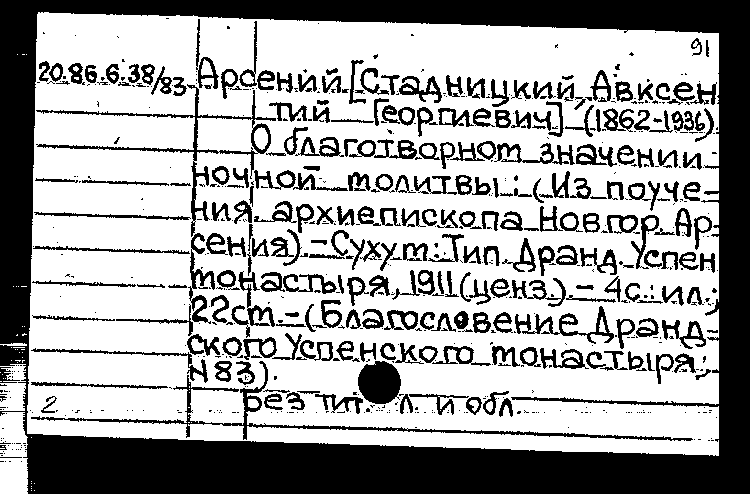 91
20.86.6.38/83 Арсений [Стадницкий Авксен
тий Георгиевич] (1862-1936).
О благотворном значении
ночной молитвы: (Из поуче-
ния архиепископа Новгор. Ар-
сения). - Сухум: Тип. Дранд. Успен
монастыря, 1911 (ценз.). - 4с.: ил.;
22см. - (Благословение Дранд-
ского Успенского монастыря;
N 83).
2 Без тит. л. и обл.